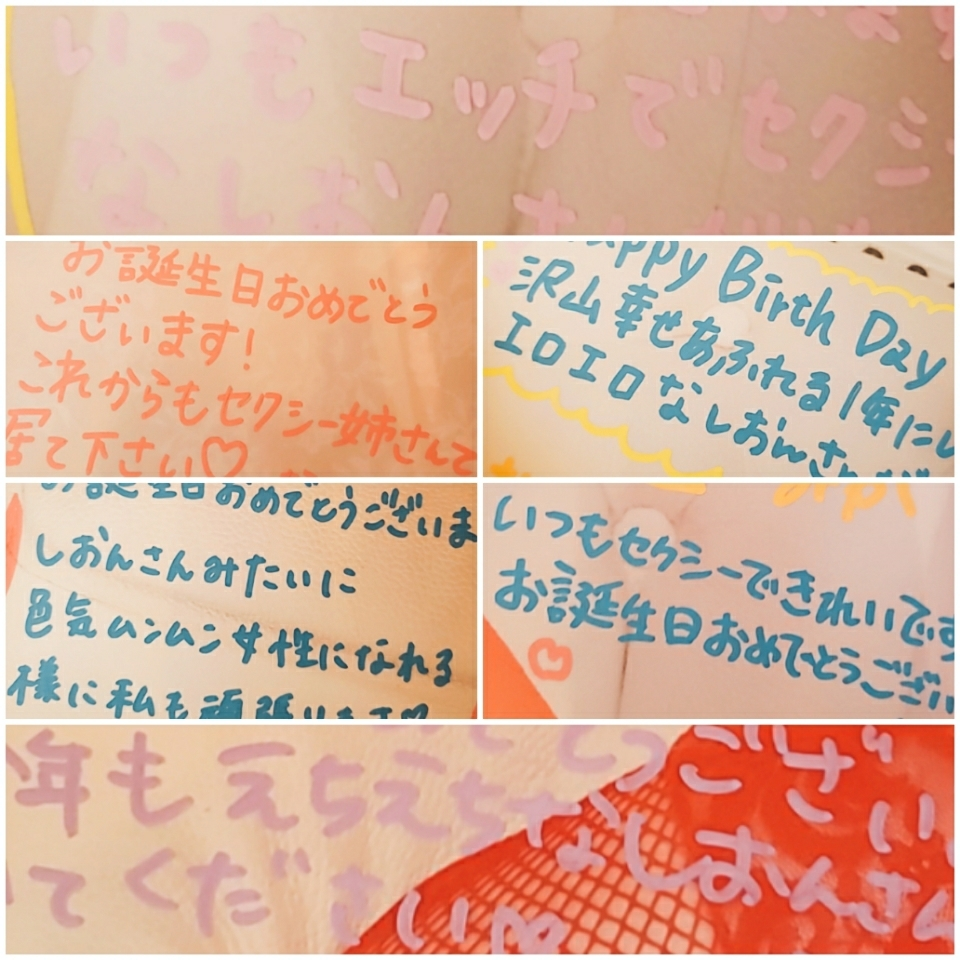 いつもエッチでセクシ
なしおんさん
お誕生日おめでとう
ございます!
これからもセクシー姉さんで
居て下さい♡
Happy Birth Day
沢山幸せあふれる1年に
エロエロなしおんさんが
お誕生日おめでとうございま
しおんさんみたいに
色気ムンムン女性になれる
様に私も頑張ります♡
いつもセクシーできれいです
お誕生日おめでとうござい
ござい
年もえちえちなしおんさん
てください♡